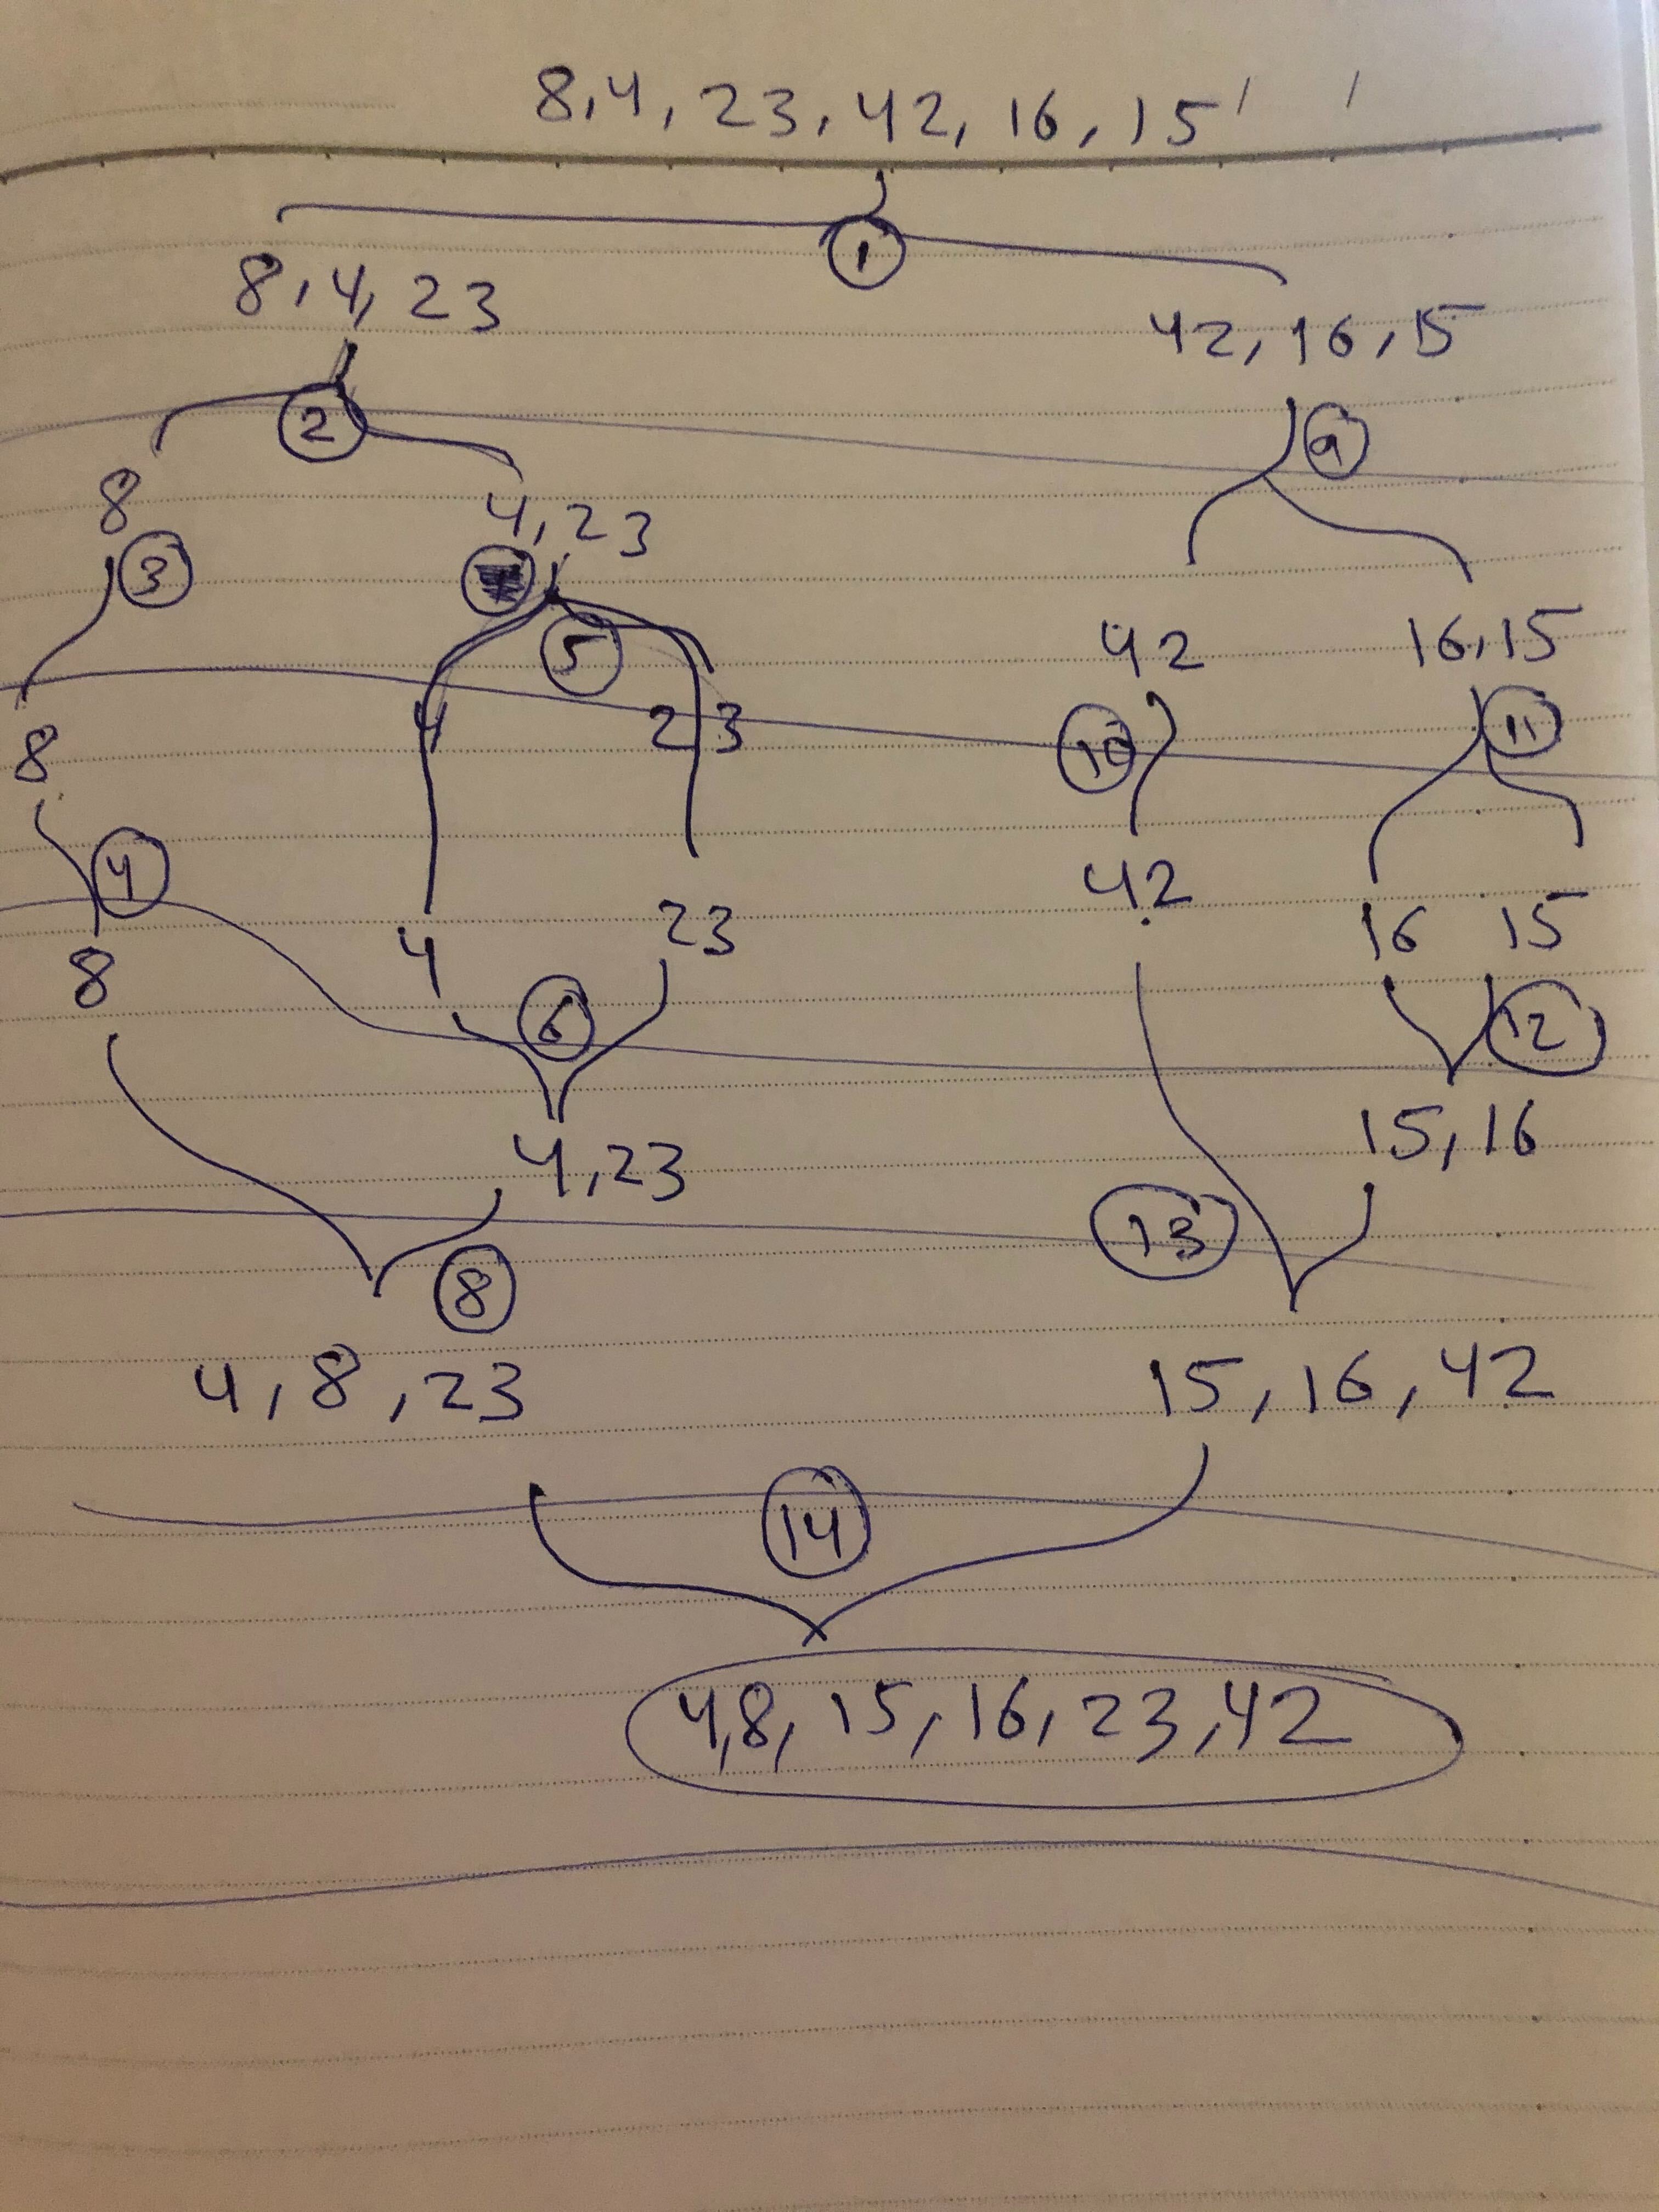 8,4,23,42,16,15
1
8,4,23
42,16,15
2
9
8
4,23
3
5
42
16,15
4
23
10
11
8
4
42
16
15
4
23
8
6
12
15,16
4,23
13
8
4,8,23
15,16,42
14
4,8,15,16,23,42